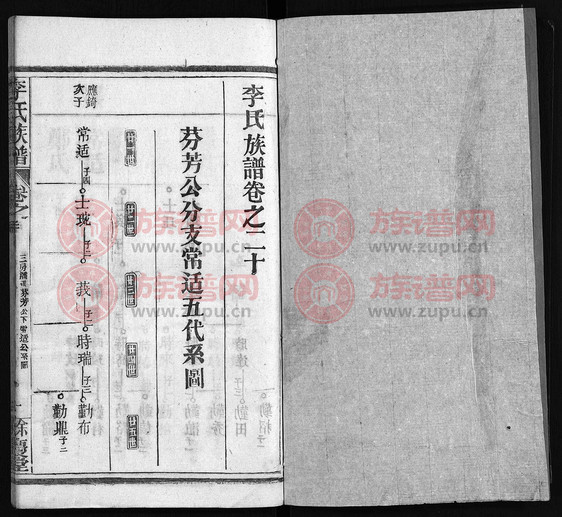 李氏族譜卷之二十
芬芳公分支常适五代系圖
廿一世
廿二世
廿三世
廿四世
廿五世
應錡
次子
常适 子四
士琬 子三
莪 子二
時瑞 子三
勷布
勷
子二
李氏族譜
卷之二十
芬芳公下常适公系圖
一
族谱网
www.zupu.cn
族谱网
www.zupu.cn
族谱网
www.zupu.cn
族谱网
www.zupu.cn